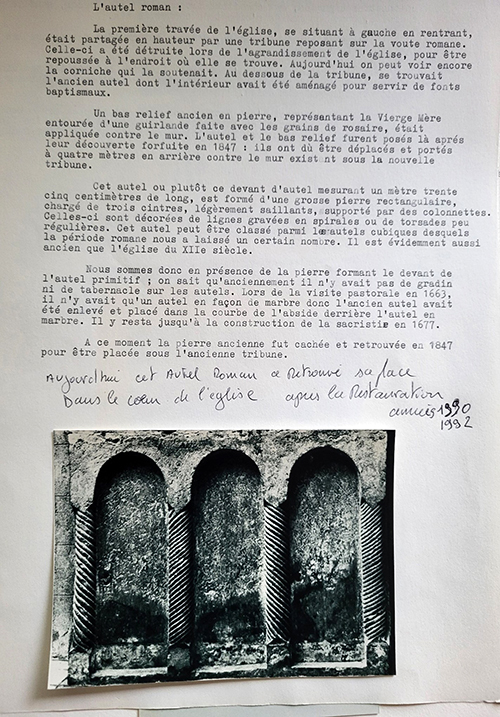 L'autel roman :
La première travée de l'église, se situant à gauche en rentrant,
était partagée en hauteur par une tribune reposant sur la voute romane.
Celle-ci a été détruite lors de l'agrandissement de l'église, pour être
repoussée à l'endroit où elle se trouve. Aujourd'hui on peut voir encore
la corniche qui la soutenait. Au dessous de la tribune, se trouvait
l'ancien autel dont l'intérieur avait été aménagé pour servir de fonts
baptismaux.
Un bas relief ancien en pierre, représentant la Vierge Mère
entourée d'une guirlande faite avec les grains de rosaire, était
appliquée contre le mur. L'autel et le bas relief furent posés là aprés
leur découverte forfuite en 1847 : ils ont dû être déplacés et portés
à quatre mètres en arrière contre le mur existant sous la nouvelle
tribune.
Cet autel ou plutôt ce devant d'autel mesurant un mètre trente
cinq centimètres de long, est formé d'une grosse pierre rectangulaire,
chargé de trois cintres, légèrement saillants, supporté par des colonnettes.
Celles-ci sont décorées de lignes gravées en spirales ou de torsades peu
régulières. Cet autel peut être classé parmi les autels cubiques desquels
la période romane nous a laissé un certain nombre. Il est évidemment aussi
ancien que l'église du XIIe siècle.
Nous sommes donc en présence de la pierre formant le devant de
l'autel primitif ; on sait qu'anciennement il n'y avait pas de gradin
ni de tabernacle sur les autels. Lors de la visite pastorale en 1663,
il n'y avait qu'un autel en façon de marbre donc l'ancien autel avait
été enlevé et placé dans la courbe de l'abside derrière l'autel en
marbre. Il y resta jusqu'à la construction de la sacristie en 1677.
A ce moment la pierre ancienne fut cachée et retrouvée en 1847
pour être placée sous l'ancienne tribune.
Aujourd'hui cet Autel Roman a Retrouvé sa place
Dans le cœur de l'église apres la Restauration
années 1990
1992